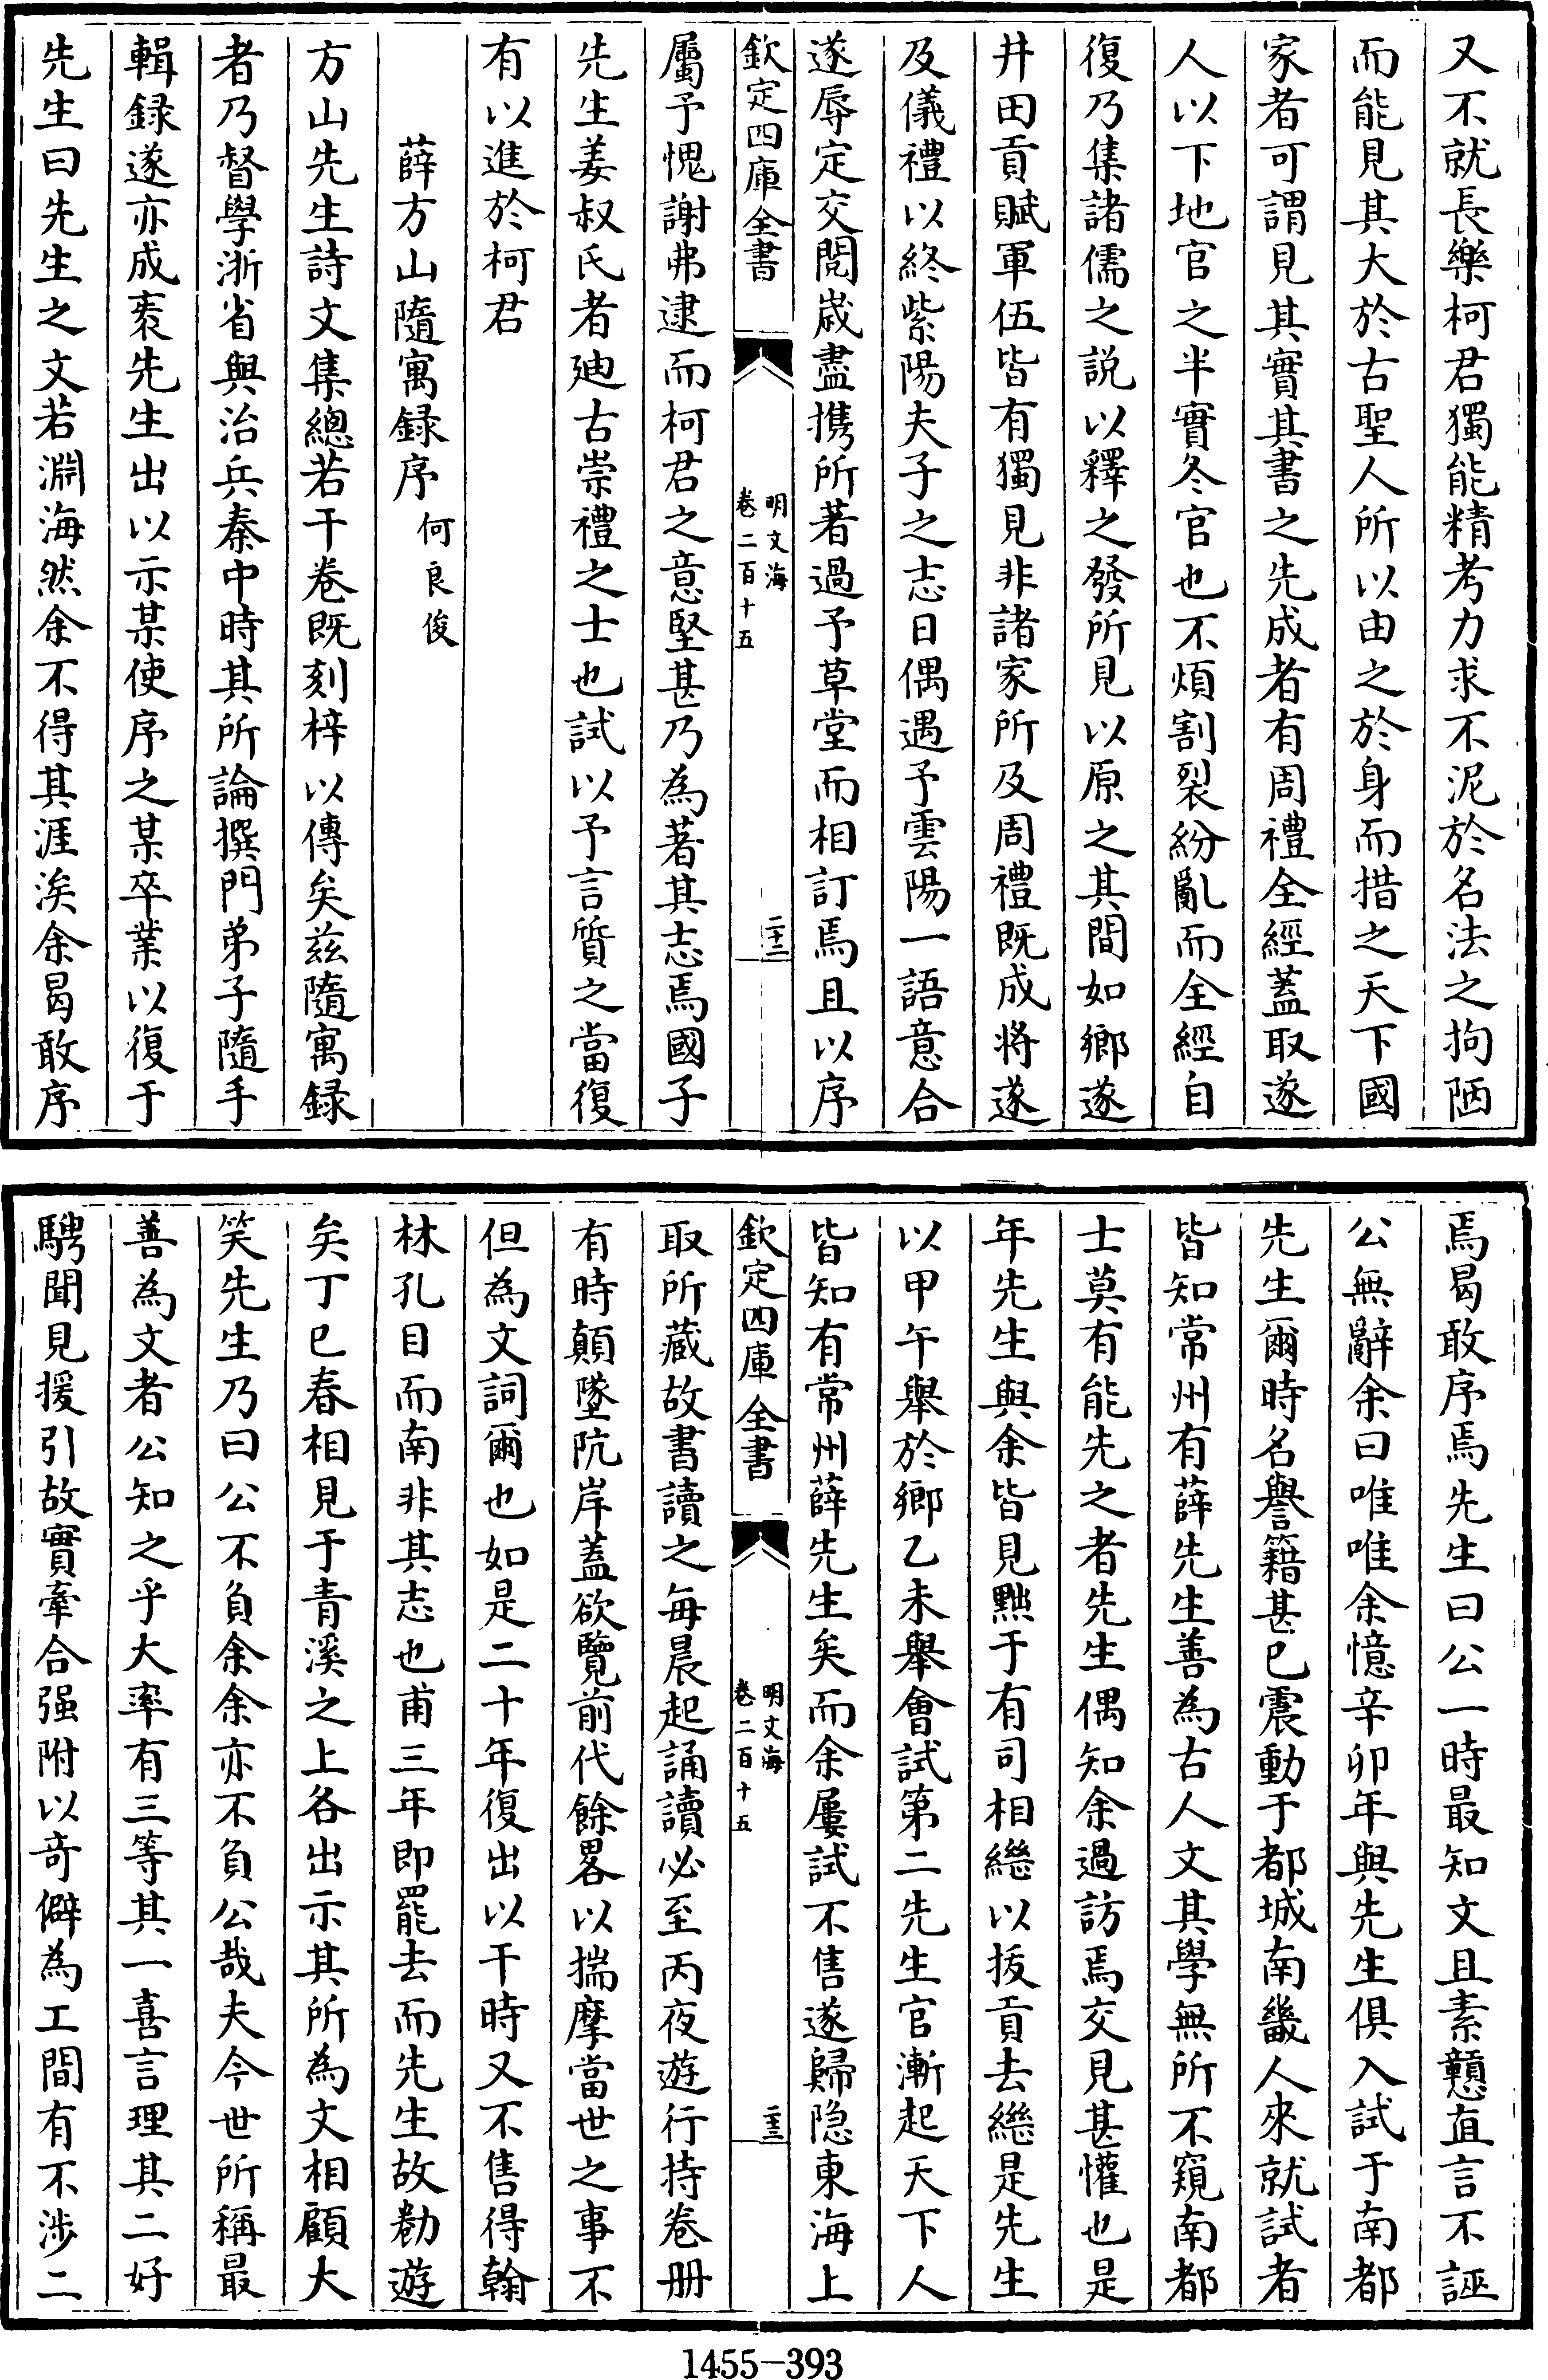 又不就長樂柯君獨能精考力求不泥於名法之拘陋
而能見其大於古聖人所以由之於身而措之天下國
家者可謂見其實其書之先成者有周禮全經蓋取遂
人以下地官之半實冬官也不煩割裂紛亂而全經自
復乃集諸儒之説以釋之發所見以原之其間如鄉遂
井田貢賦軍伍皆有獨見非諸家所及周禮既成将遂
及儀禮以終紫陽夫子之志日偶遇予雲陽一語意合
遂辱定交閱嵗盡携所著過予草堂而相訂焉且以序
欽定四庫全書
明文海
卷二百十五
二十二
屬予愧謝弗逮而柯君之意堅甚乃為著其志焉國子
先生姜叔氏者廸古崇禮之士也試以予言質之當復
有以進於柯君
薛方山隨寓録序 何良俊
方山先生詩文集總若干卷既刻梓以傳矣兹隨寓録
者乃督學浙省與治兵秦中時其所論撰門弟子隨手
輯録遂亦成袠先生出以示某使序之某卒業以復于
先生曰先生之文若淵海然余不得其涯涘余曷敢序
焉曷敢序焉先生曰公一時最知文且素戇直言不誣
公無辭余曰唯唯余憶辛卯年與先生俱入試于南都
先生爾時名譽籍甚已震動于都城南畿人來就試者
皆知常州有薛先生善為古人文其學無所不窺南都
士莫有能先之者先生偶知余過訪焉交見甚懽也是
年先生與余皆見黜于有司相繼以拔貢去繼是先生
以甲午舉於鄉乙未舉會試第二先生官漸起天下人
皆知有常州薛先生矣而余屢試不售遂歸隐東海上
欽定四庫全書
明文海
卷二百十五
二十三
取所藏故書讀之每晨起誦讀必至丙夜遊行持卷册
有時顛墜阬岸蓋欲覽前代餘畧以揣摩當世之事不
但為文詞爾也如是二十年復出以干時又不售得翰
林孔目而南非其志也甫三年即罷去而先生故勸遊
矣丁巳春相見于青溪之上各出示其所為文相顧大
笑先生乃曰公不負余余亦不負公哉夫今世所稱最
善為文者公知之乎大率有三等其一喜言理其二好
騁聞見援引故實牽合强附以奇僻為工間有不涉二
1455-393